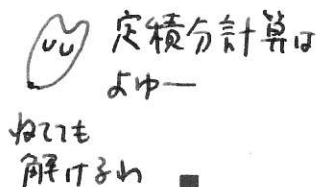 定積分計算は
よゆー
ねてても
解けるわ